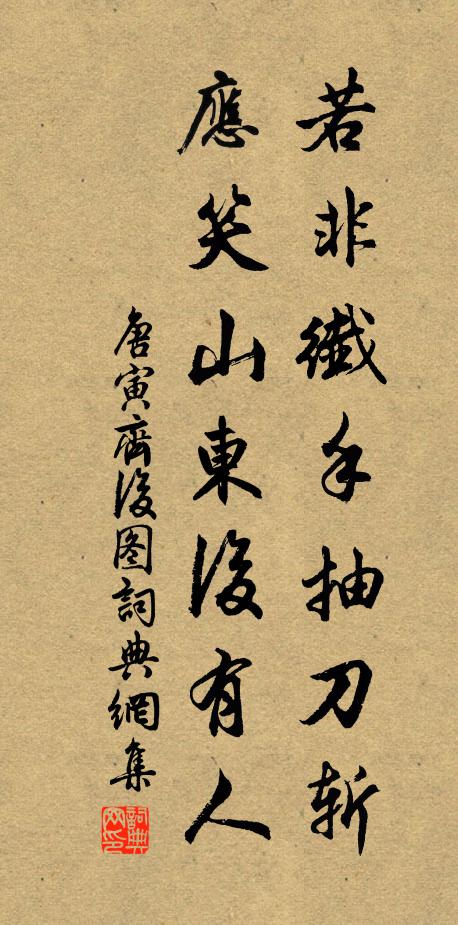 若非纖手抽刀斬
應笑山東後有人
唐寅齊後图詞典網集
詞典网印